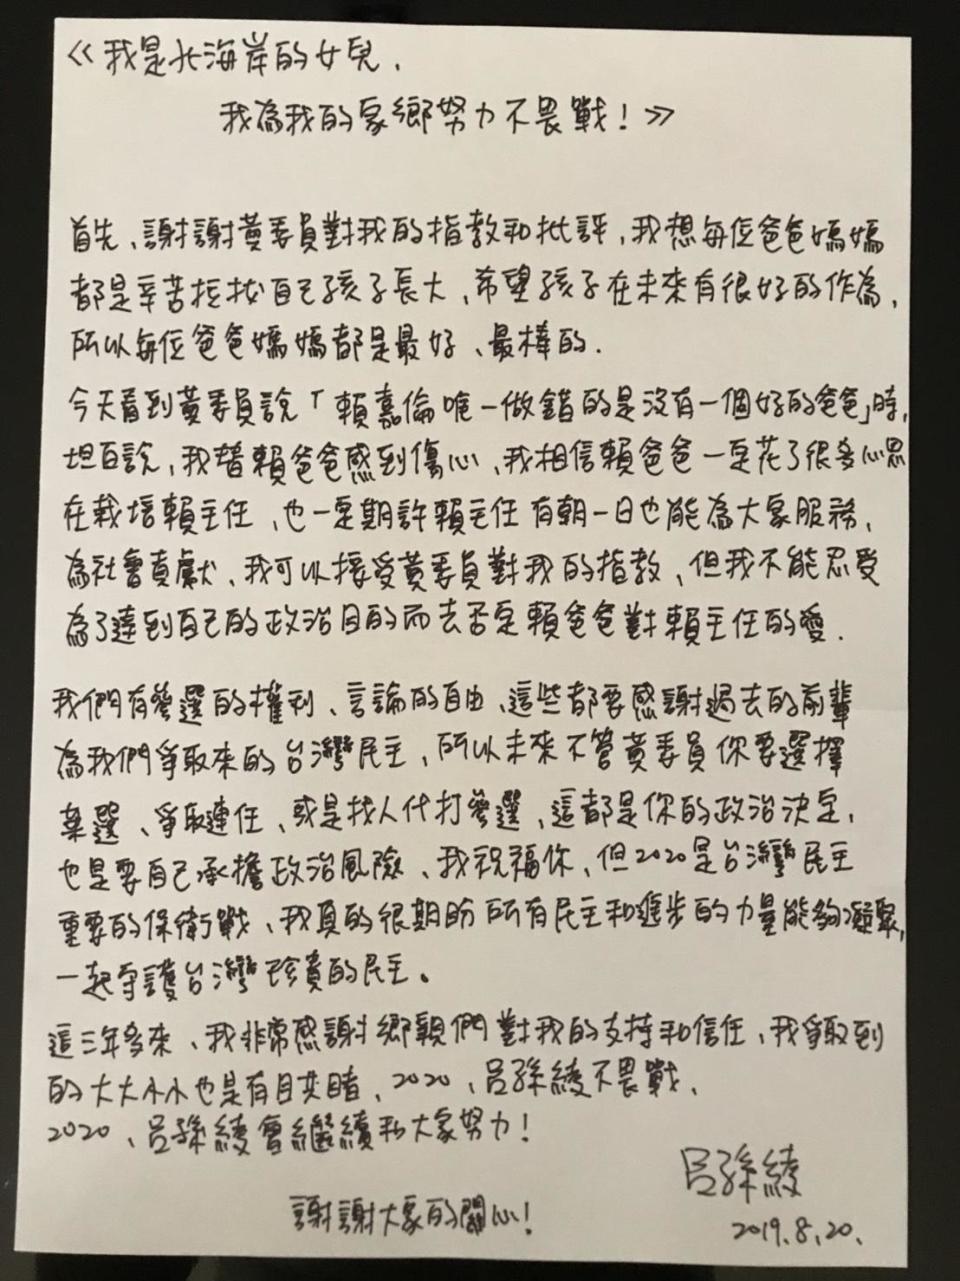 《我是北海岸的女兒、
我為我的家鄉努力不畏戰！》
首先、謝謝黃委員對我的指教和批評、我想每位爸爸媽媽
都是辛苦拉拔自己孩子長大、希望孩子在未來有很好的作為、
所以每位爸爸媽媽都是最好、最棒的.
今天看到黃委員說「賴嘉倫唯一做錯的是沒有一個好的爸爸」時,
坦白說,我替賴爸爸感到傷心、我相信賴爸爸一定花了很多心思
在栽培賴主任、也一定期許賴主任有朝一日也能為大家服務、
為社會貢獻、我可以接受黃委員對我的指教、但我不能忍受
為了達到自己的政治目的而去否定賴爸爸對賴主任的愛.
我們有參選的權利、言論的自由、這些都要感謝過去的前輩
為我們爭取來的台灣民主,所以未來不管黃委員你要選擇
棄選、爭取連任、或是找人代打參選、這都是你的政治決定,
也是要自己承擔政治風險、我祝福你、但2020是台灣民主
重要的保衛戰、我真的很期盼所有民主和進步的力量能夠凝聚,
一起守護台灣珍貴的民主。
這三年多來、我非常感謝鄉親們對我的支持和信任、我爭取到
的大大小小也是有目共睹、2020、呂孫綾不畏戰、
2020、呂孫綾會繼續和大家努力！
呂孫綾
謝謝大家的關心！
2019.8.20.